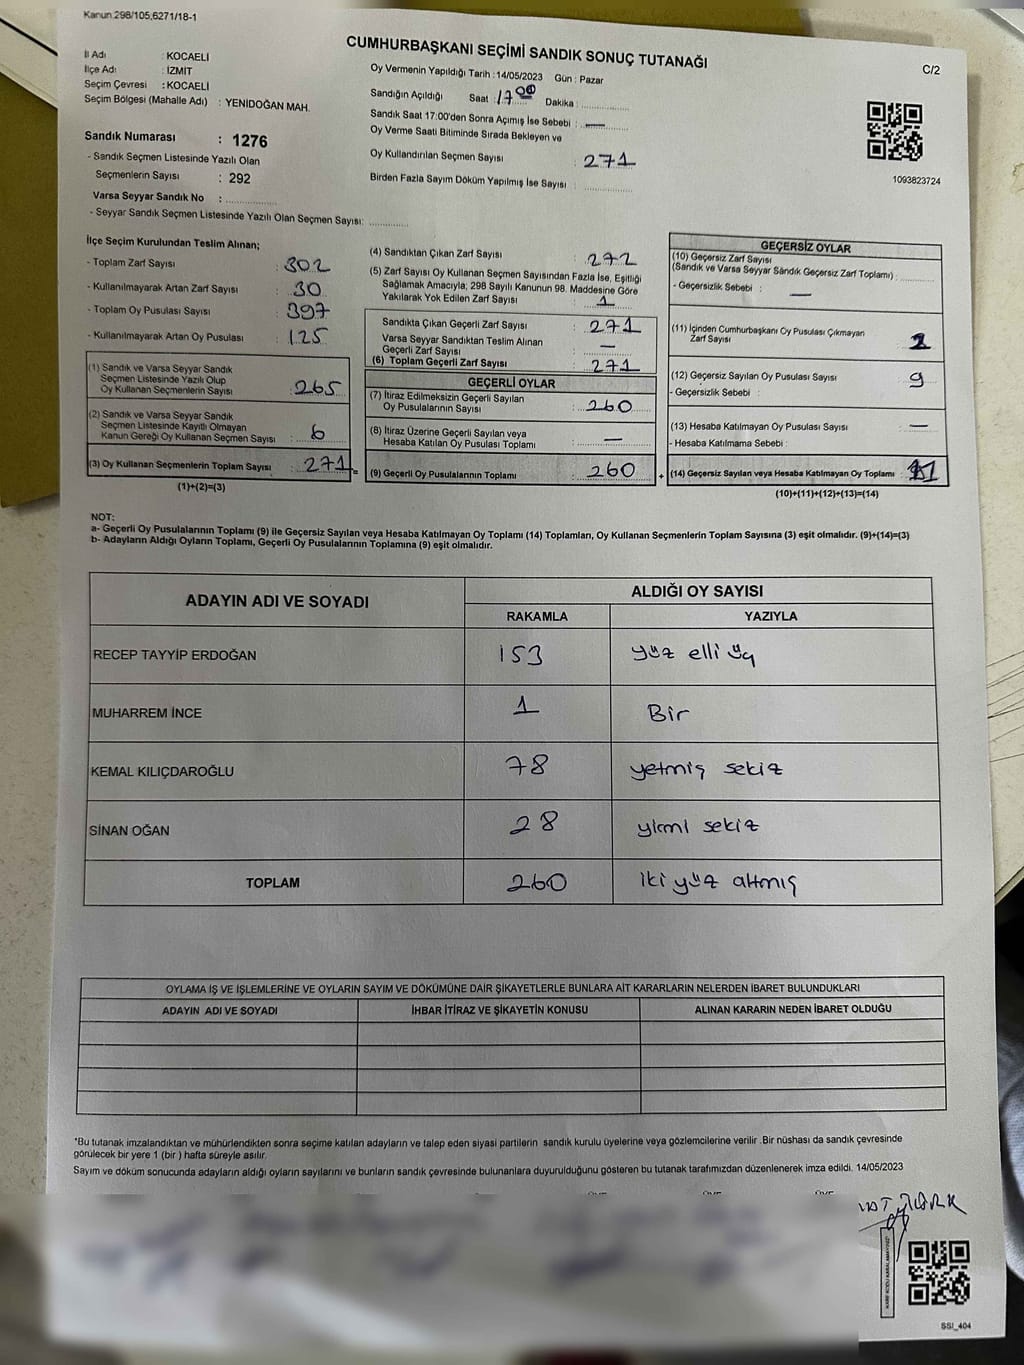 Kanun 298/105,6271/18-1
CUMHURBAŞKANI SEÇİMİ SANDIK SONUÇ TUTANAĞI
C/2
İl Adı : KOCAELİ
İlçe Adı : İZMİT
Seçim Çevresi : KOCAELİ
Seçim Bölgesi (Mahalle Adı) : YENİDOĞAN MAH.
Sandık Numarası : 1276
- Sandık Seçmen Listesinde Yazılı Olan
Seçmenlerin Sayısı : 292
Varsa Seyyar Sandık No :
- Seyyar Sandık Seçmen Listesinde Yazılı Olan Seçmen Sayısı:
Oy Vermenin Yapıldığı Tarih :14/05/2023 Gün : Pazar
Sandığın Açıldığı Saat : 17 00 Dakika :
Sandık Saat 17:00'den Sonra Açımış İse Sebebi : —
Oy Verme Saati Bitiminde Sırada Bekleyen ve
Oy Kullandırılan Seçmen Sayısı : 271
Birden Fazla Sayım Döküm Yapılmış İse Sayısı :
1093823724
İlçe Seçim Kurulundan Teslim Alınan;
- Toplam Zarf Sayısı : 302
- Kullanılmayarak Artan Zarf Sayısı : 30
- Toplam Oy Pusulası Sayısı : 397
- Kullanılmayarak Artan Oy Pusulası : 125
(1) Sandık ve Varsa Seyyar Sandık
Seçmen Listesinde Yazılı Olup
Oy Kullanan Seçmenlerin Sayısı : 265
(2) Sandık ve Varsa Seyyar Sandık
Seçmen Listesinde Kayıtlı Olmayan
Kanun Gereği Oy Kullanan Seçmen Sayısı : 6
(3) Oy Kullanan Seçmenlerin Toplam Sayısı : 271 =
(1)+(2)=(3)
(4) Sandıktan Çıkan Zarf Sayısı : 272
(5) Zarf Sayısı Oy Kullanan Seçmen Sayısından Fazla İse, Eşitliği
Sağlamak Amacıyla, 298 Sayılı Kanunun 98. Maddesine Göre
Yakılarak Yok Edilen Zarf Sayısı : 1
Sandıkta Çıkan Geçerli Zarf Sayısı : 271
Varsa Seyyar Sandıktan Teslim Alınan
Geçerli Zarf Sayısı : —
(6) Toplam Geçerli Zarf Sayısı : 271
GEÇERLİ OYLAR
(7) İtiraz Edilmeksizin Geçerli Sayılan
Oy Pusulalarının Sayısı : 260
(8) İtiraz Üzerine Geçerli Sayılan veya
Hesaba Katılan Oy Pusulası Toplamı : —
(9) Geçerli Oy Pusulalarının Toplamı : 260 +
GEÇERSİZ OYLAR
(10) Geçersiz Zarf Sayısı
(Sandık ve Varsa Seyyar Sandık Geçersiz Zarf Toplamı) :
- Geçersizlik Sebebi : —
(11) İçinden Cumhurbaşkanı Oy Pusulası Çıkmayan
Zarf Sayısı : 2
(12) Geçersiz Sayılan Oy Pusulası Sayısı : 9
- Geçersizlik Sebebi :
(13) Hesaba Katılmayan Oy Pusulası Sayısı : —
- Hesaba Katılmama Sebebi :
(14) Geçersiz Sayılan veya Hesaba Katılmayan Oy Toplamı : 11
(10)+(11)+(12)+(13)=(14)
NOT:
a- Geçerli Oy Pusulalarının Toplamı (9) ile Geçersiz Sayılan veya Hesaba Katılmayan Oy Toplamı (14) Toplamları, Oy Kullanan Seçmenlerin Toplam Sayısına (3) eşit olmalıdır. (9)+(14)=(3)
b- Adayların Aldığı Oyların Toplamı, Geçerli Oy Pusulalarının Toplamına (9) eşit olmalıdır.
ADAYIN ADI VE SOYADI
ALDIĞI OY SAYISI
RAKAMLA YAZIYLA
RECEP TAYYİP ERDOĞAN 153 yüz elli üç
MUHARREM İNCE 1 Bir
KEMAL KILIÇDAROĞLU 78 yetmiş sekiz
SİNAN OĞAN 28 yirmi sekiz
TOPLAM 260 iki yüz altmış
OYLAMA İŞ VE İŞLEMLERİNE VE OYLARIN SAYIM VE DÖKÜMÜNE DAİR ŞİKAYETLERLE BUNLARA AİT KARARLARIN NELERDEN İBARET BULUNDUKLARI
ADAYIN ADI VE SOYADI İHBAR İTİRAZ VE ŞİKAYETİN KONUSU ALINAN KARARIN NEDEN İBARET OLDUĞU
*Bu tutanak imzalandıktan ve mühürlendikten sonra seçime katılan adayların ve talep eden siyasi partilerin sandık kurulu üyelerine veya gözlemcilerine verilir .Bir nüshası da sandık çevresinde
görülecek bir yere 1 (bir ) hafta süreyle asılır.
Sayım ve döküm sonucunda adayların aldığı oyların sayılarını ve bunların sandık çevresinde bulunanlara duyurulduğunu gösteren bu tutanak tarafımızdan düzenlenerek imza edildi. 14/05/2023
KARE KODU KARALAMAYINIZ
SSI_404